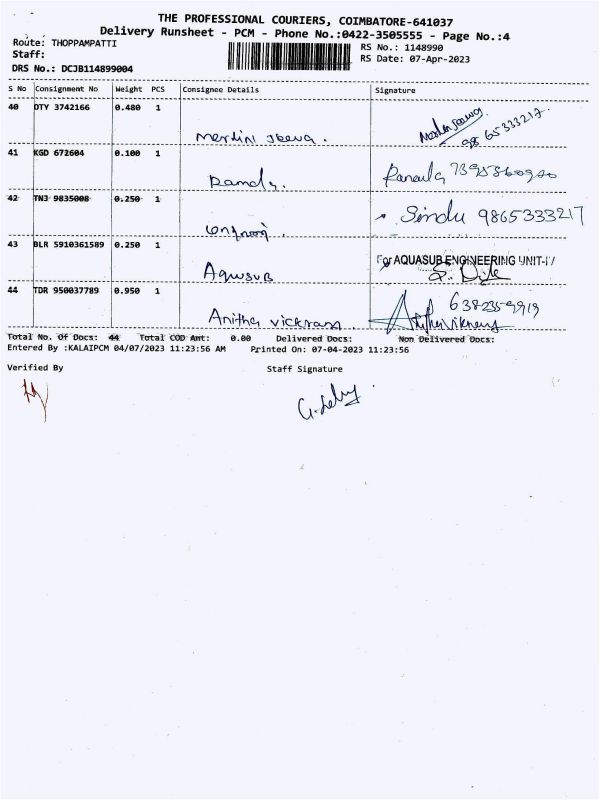 THE PROFESSIONAL COURIERS, COIMBATORE-641037
Delivery Runsheet - PCM - Phone No.:0422-3505555 - Page No.:4
Route: THOPPAMPATTI
RS No.: 1148990
Staff:
RS Date: 07-Apr-2023
DRS No.: DCJB114899004
S No Consignment No Weight PCS Consignee Details Signature
40 DTY 3742166 0.480 1
Merlin Jeeva. 9865333217.
41 KGD 672604 0.100 1
42 TN3 9835008 0.250 1
Sindu 9865333217
43 BLR 5910361589 0.250 1
For AQUASUB ENGINEERING UNIT-IV
Aquasub
44 TDR 950037789 0.950 1
Anitha vickram.
Total No. Of Docs: 44 Total COD Amt: 0.00 Delivered Docs: Non Delivered Docs:
Entered By :KALAIPCM 04/07/2023 11:23:56 AM Printed On: 07-04-2023 11:23:56
Verified By Staff Signature